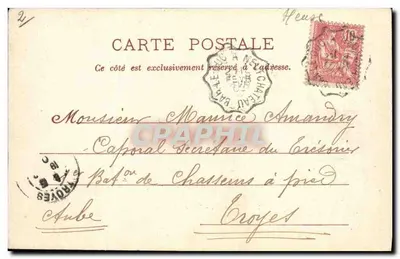 2/
Meuse
CARTE POSTALE
Ce côté est exclusivement réservé à l'adresse.
NEUFCHATEAU
BAR-LE-DUC
10
Monsieur Maurice Amandry
Caporal Secrétaire du Trésorier
Bat.on de Chasseurs à pied
Troyes
Aube
TROYES